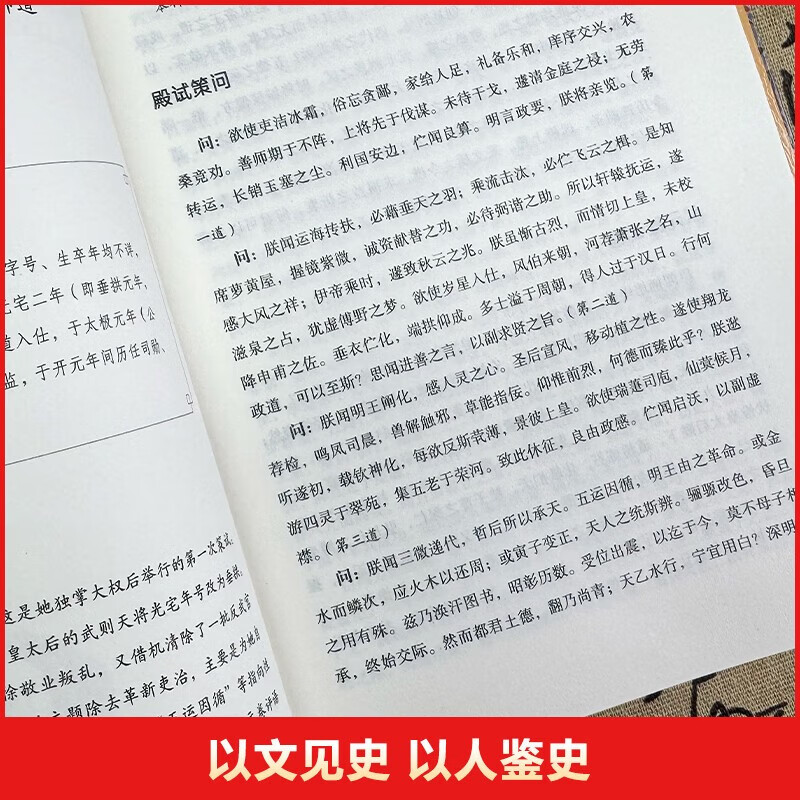 字号、生卒年均不详,
元宅二年(即垂拱元年,
道入仕,于太极元年(公
监,于开元年间历任司勋、
这是她独掌大权后举行的第一次策试,
皇太后的武则天将光宅年号改为垂拱,
徐敬业叛乱,又借机清除了一批反武官
主题除去革新吏治,主要是为她自
五运因循”等指向性
殿试策问
问:欲使吏洁冰霜,俗忘贪鄙,家给人足,礼备乐和,庠序交兴,农
桑竞劝。善师期于不阵,上将先于伐谋。未待干戈,遽清金庭之祲;无劳
转运,长销玉塞之尘。利国安边,伫闻良算。明言政要,朕将亲览。(第
一道)
问:朕闻运海抟扶,必藉垂天之羽;乘流击汰,必伫飞云之楫。是知
席萝黄屋,握镜紫微,诚资献替之功,必待弼谐之助。所以轩辕抚运,遂
感大风之祥;伊帝乘时,遽致秋云之兆。朕虽惭古烈,而情切上皇,未校
滋泉之占,犹虚傅野之梦。欲使岁星入仕,风伯来朝,河荐萧张之名,山
降申甫之佐。垂衣伫化,端拱仰成。多士溢于周朝,得人过于汉日。行何
政道,可以至斯?思闻进善之言,以副求贤之旨。(第二道)
问:朕闻明王阐化,感人灵之心。圣后宣风,移动植之性。遂使翔龙
荐检,鸣凤司晨,兽解触邪,草能指佞。仰惟前烈,何德而臻此乎?朕逖
听遂初,载钦神化,每欲反斯茕薄,景彼上皇。欲使瑞莲司庖,仙蓂候月,
游四灵于翠苑,集五老于荣河。致此休征,良由政感。伫闻启沃,以副虚
襟。(第三道)
问:朕闻三微递代,哲后所以承天。五运因循,明王由之革命。或金
水而鳞次,应火木以还周;或寅子变正,天人之统斯辨。骊骃改色,昏旦
之用有殊。兹乃涣汗图书,昭彰历数。受位出震,以迄于今,莫不母子相
承,终始交际。然而都君土德,翻乃尚青;天乙水行,宁宜用白?深明
以文见史 以人鉴史